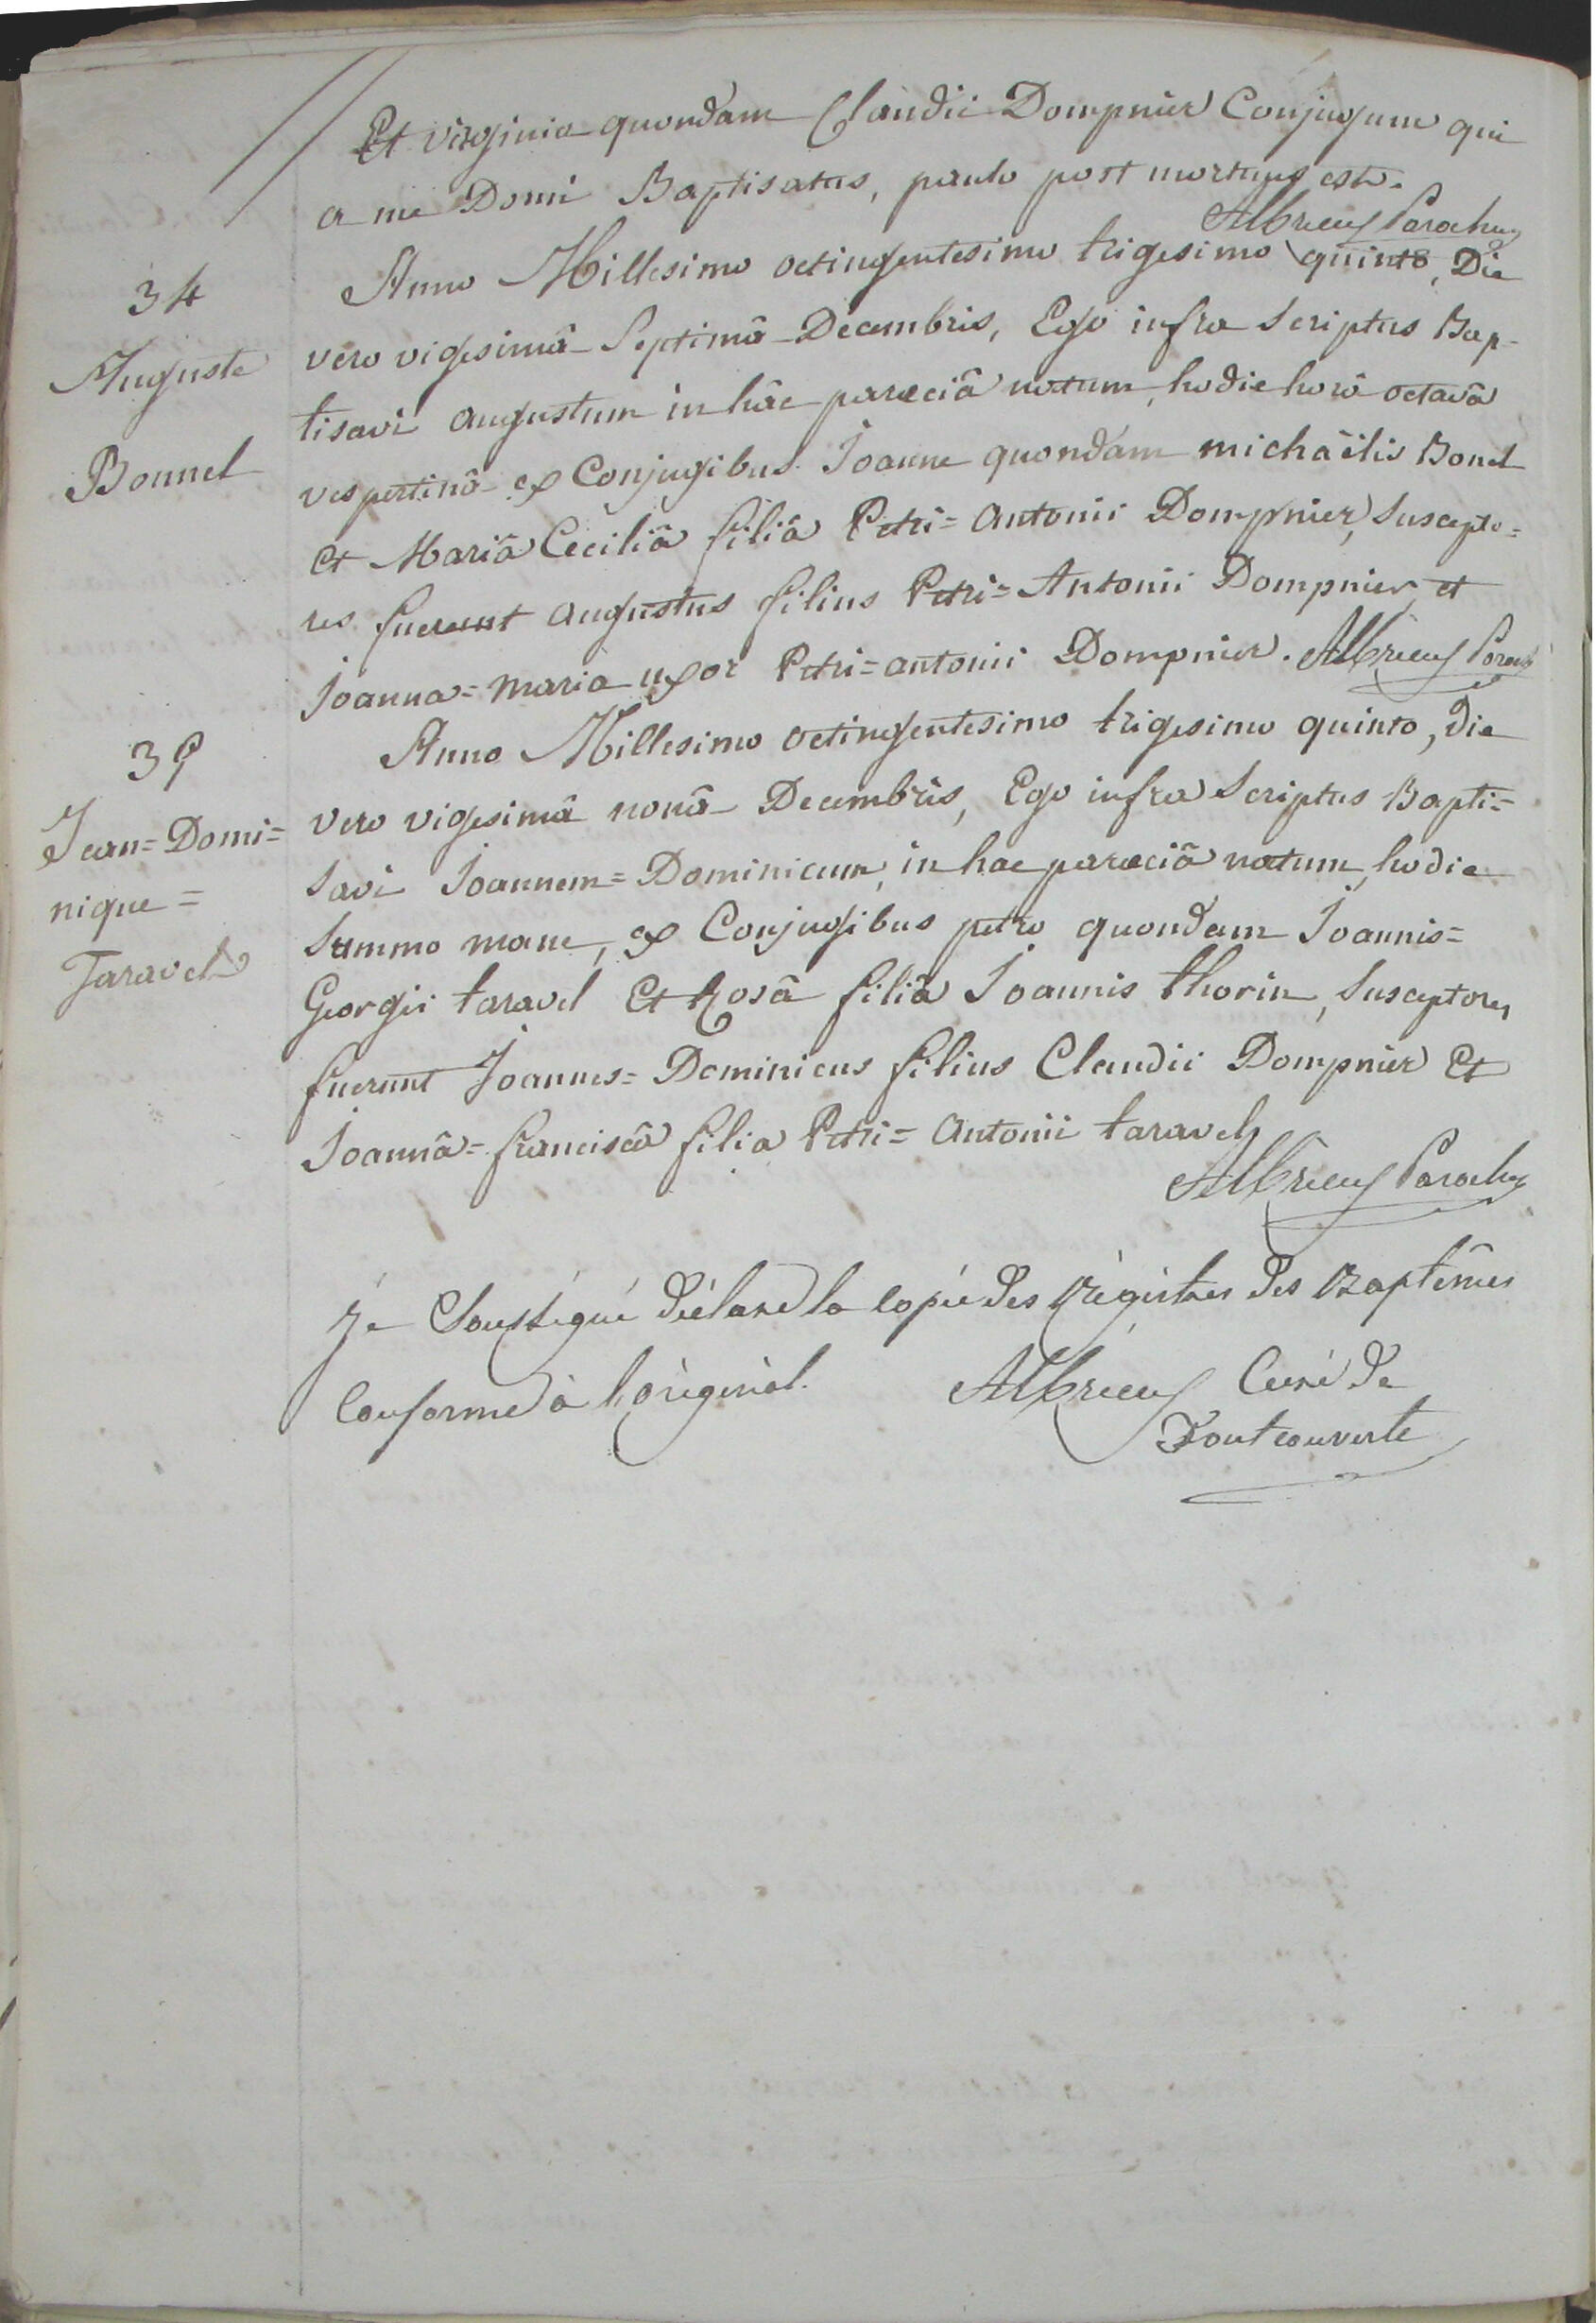 Et virginia quondam Claudii Dompnier Conjugum qui
a me Domi Baptisatus, paulo post mortuus est.
Albrieux Parochus
34
Auguste
Bonnel
Anno Millesimo octingentesimo trigesimo quinto, Die
vero vigesimâ Septimâ Decembris, Ego infra Scriptus Bap-
tisavi augustum in hâc parœciâ natum, hodie horâ octavâ
vespertinâ ex Conjugibus Joanne quondam michaëlis Bonel
et Mariâ Ceciliâ filiâ Petri=antonii Dompnier, Suscepto=
res fuerunt augustus filius Petri=Antonii Dompnier et
Joanna=maria uxor Petri=antonii Dompnier. Albrieux Paroch
35
Jean=Domi=
nique=
Taravel
Anno Millesimo octingentesimo trigesimo quinto, die
vero vigesimâ nonâ Decembris, Ego infra Scriptus Bapti=
savi Joannem=Dominicum, in hac parœciâ natum, hodie
Summo mane, ex Conjugibus petro quondam Joannis=
Georgii taravel Et Rosâ filiâ Joannis thorin, Susceptores
fuerunt Joannes=Dominicus filius Claudii Dompnier Et
Joannâ=franciscâ filia Petri=Antonii taravel
Albrieux Parochus
Je Soussigné déclare la copie des Régistres des Baptêmes
Conforme à l'original. Albrieux Curé de
Fontcouverte